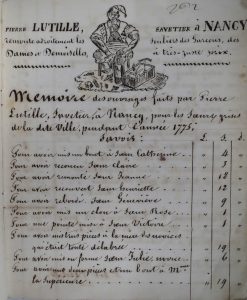 202
PIERRE LUTILLE, SAVETIER à NANCY
remonte adroitement les souliers des Garçons, des
Dames et Demoiselles, à très-juste prix.
Memoire des ouvrages faits par Pierre
Lutille, Savetier, à Nancy, pour les Sœurs grises
de la dite Ville, pendant l'année 1775,
Savoir:
Pour avoir mis un bout à Sœur Catherine 4
Pour avoir recousu Sœur Claire
Pour avoir remonté Sœur Jeanne 12
Pour avoir recouvert Sœur Henriette 12
Pour avoir rebordé Sœur Geneviève
Pour avoir mis un clou à Sœur Rose 1
Pour une pointe mise à Sœur Victoire
Pour avoir mis pièces à la mère des novices
qui était toute délabrée 19
Pour avoir mis une pièce Sœur Julie, novice 6
Pour avoir mis deux pièces et un bout à Mme
la Supérieure 19